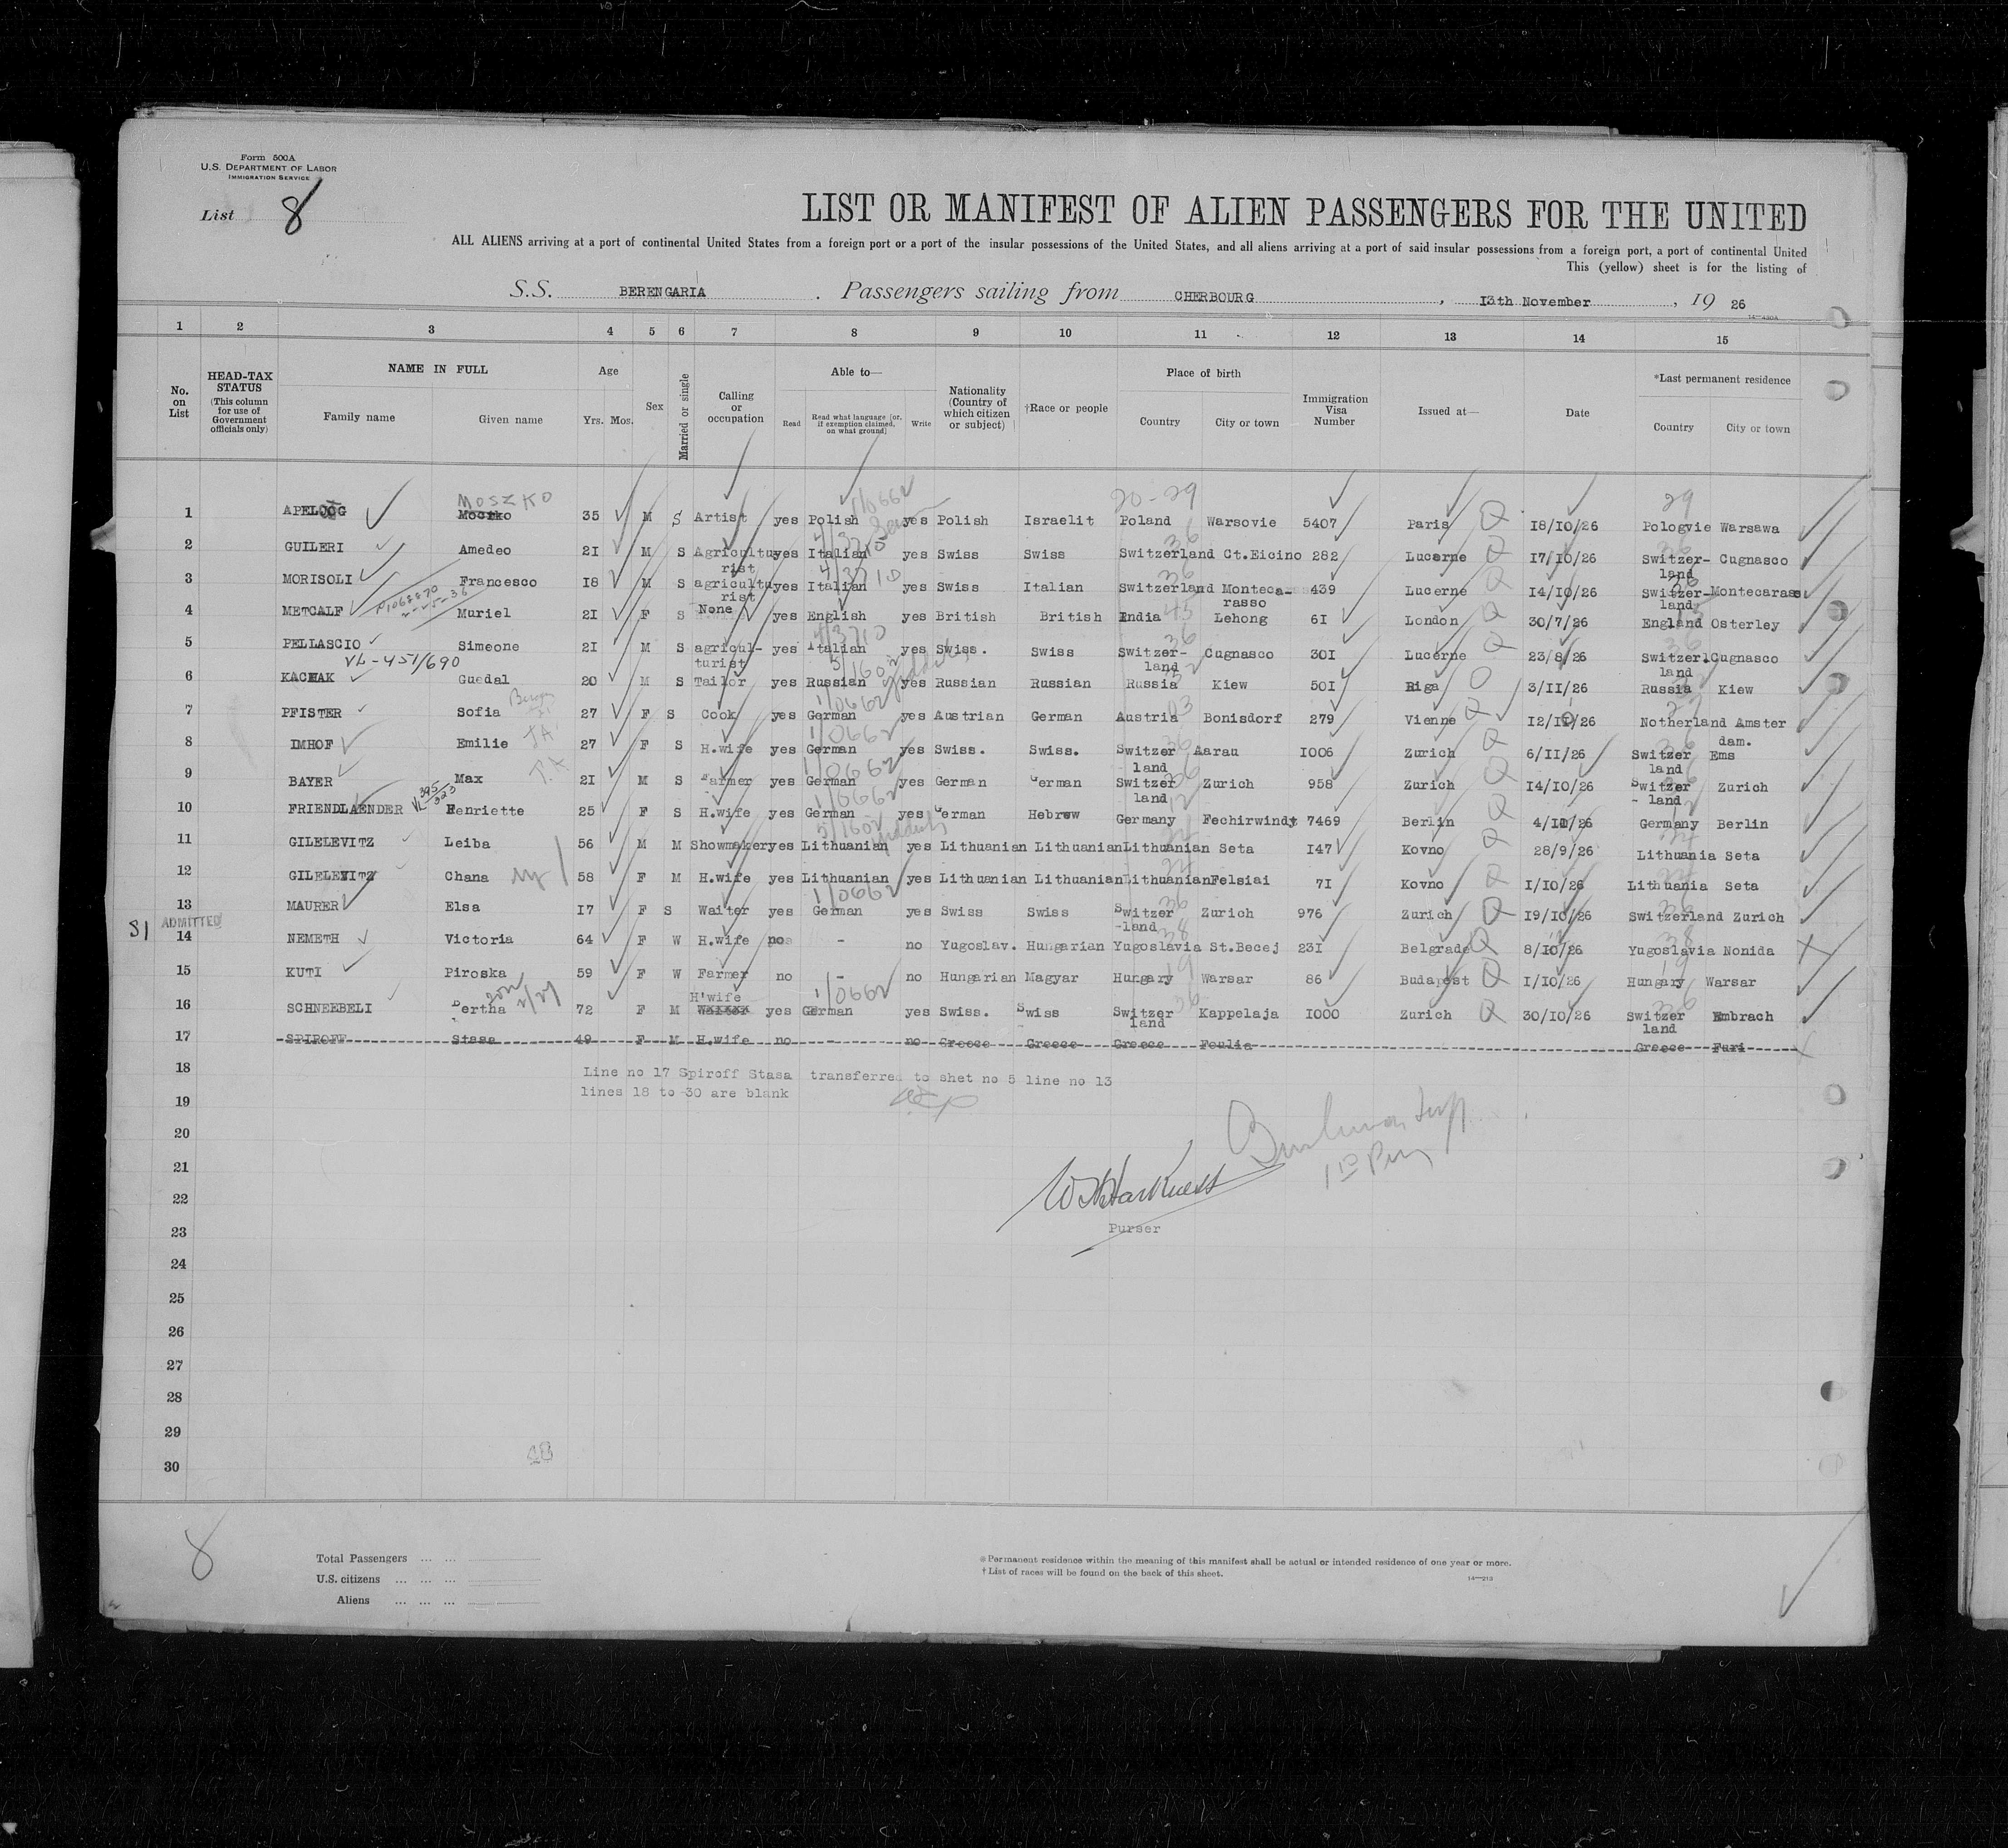 Form 500A
U.S. DEPARTMENT OF LABOR
IMMIGRATION SERVICE
List 8
LIST OR MANIFEST OF ALIEN PASSENGERS FOR THE UNITED
ALL ALIENS arriving at a port of continental United States from a foreign port or a port of the insular possessions of the United States, and all aliens arriving at a port of said insular possessions from a foreign port, a port of continental United
This (yellow) sheet is for the listing of
S.S. BERENGARIA. Passengers sailing from CHERBOURG, 13th November, 19 26
14-430A
1 2 3 4 5 6 7 8 9 10 11 12 13 14 15
No. on List
HEAD-TAX STATUS (This column for use of Government officials only)
NAME IN FULL
Family name Given name
Age
Yrs. Mos.
Sex
Married or single
Calling or occupation
Able to—
Read Read what language [or, if exemption claimed, on what ground] Write
Nationality (Country of which citizen or subject)
†Race or people
Place of birth
Country City or town
Immigration Visa Number
Issued at—
Date
*Last permanent residence
Country City or town
MOSZKO 1/0662 20-29 29
1 35 M S Artist yes Polish yes Polish Israelit Poland Warsovie 5407 Paris 18/10/26 Pologvie Warsawa
2 GUILERI Amedeo 21 M S Agricultu rist yes Italian yes Swiss Swiss Switzerland Ct.Eicino 282 Lucerne 17/10/26 Switzer- land Cugnasco
3 MORISOLI Francesco 18 M S agricultu rist yes Italian yes Swiss Italian Switzerland Monteca- rasso 439 Lucerne 14/10/26 Switzer- land Montecarass
4 METCALF Muriel 21 F S None yes English yes British British India Lehong 61 London 30/7/26 England Osterley
5 PELLASCIO Simeone 21 M S agricul- turist yes Italian yes Swiss. Swiss Switzer- land Cugnasco 301 Lucerne 23/8/26 Switzerl land Cugnasco
VL-451/690
6 KACHAK Guedal 20 M S Tailor yes Russian yes Russian Russian Russia Kiew 501 Riga 3/11/26 Russia Kiew
7 PFISTER Sofia 27 F S Cook yes German yes Austrian German Austria Bonisdorf 279 Vienne 12/11/26 Notherland Amster dam.
8 IMHOF Emilie 27 F S H.wife yes German yes Swiss. Swiss. Switzer land Aarau 1006 Zurich 6/11/26 Switzer land Ems
9 BAYER Max 21 M S Farmer yes German yes German German Switzer land Zurich 958 Zurich 14/10/26 Switzer - land Zurich
10 FRIENDLAENDER Henriette 25 F S H.wife yes German yes German Hebrew Germany Fechirwindt 7469 Berlin 4/11/26 Germany Berlin
11 GILELEVITZ Leiba 56 M M Showmaker yes Lithuanian yes Lithuanian Lithuanian Lithuanian Seta 147 Kovno 28/9/26 Lithuania Seta
12 GILELEVITZ Chana 58 F M H.wife yes Lithuanian yes Lithuanian Lithuanian Lithuanian Felsiai 71 Kovno 1/10/26 Lithuania Seta
13 MAURER Elsa 17 F S Waiter yes German yes Swiss Swiss Switzer -land Zurich 976 Zurich 19/10/26 Switzerland Zurich
SI ADMITTED
14 NEMETH Victoria 64 F W H.wife no - no Yugoslav. Hungarian Yugoslavia St.Becej 231 Belgrade 8/10/26 Yugoslavia Nonida
15 KUTI Piroska 59 F W Farmer no - no Hungarian Magyar Hungary Warsar 86 Budapest 1/10/26 Hungary Warsar
16 SCHNEEBELI Bertha 72 F M H'wife yes German yes Swiss. Swiss Switzer land Kappelaja 1000 Zurich 30/10/26 Switzer land Embrach
17 SPIROFF Stasa 49 F M H.wife no no Greece Greece Greece Foulia Greece Furi
18 Line no 17 Spiroff Stasa transferred to shet no 5 line no 13
19 lines 18 to 30 are blank
20
21
22 W Harkness
23 Purser
24
25
26
27
28
29
30
8
Total Passengers
U.S. citizens
Aliens
*Permanent residence within the meaning of this manifest shall be actual or intended residence of one year or more.
†List of races will be found on the back of this sheet.
14-213